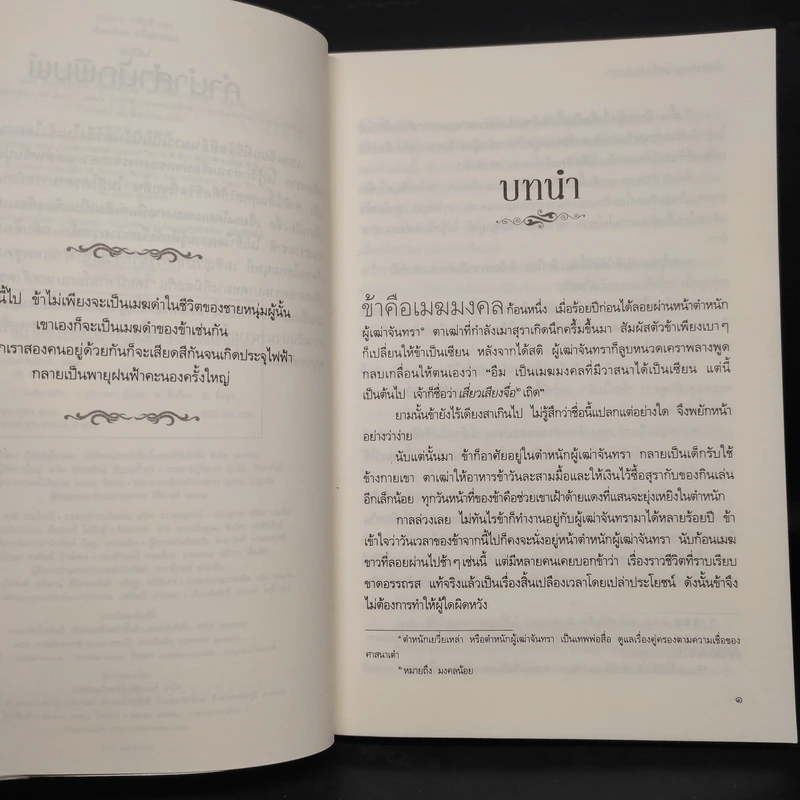 นี้ไป ข้าไม่เพียงจะเป็นเมฆดำในชีวิตของชายหนุ่มผู้นั้น
เขาเองก็จะเป็นเมฆดำของข้าเช่นกัน
กเราสองคนอยู่ด้วยกันก็จะเสียดสีกันจนเกิดประจุไฟฟ้า
กลายเป็นพายุฝนฟ้าคะนองครั้งใหญ่
บทนำ
ข้าคือเมฆมงคลก้อนหนึ่ง เมื่อร้อยปีก่อนได้ลอยผ่านหน้าตำหนัก
ผู้เฒ่าจันทรา* ตาเฒ่าที่กำลังเมาสุราเกิดนึกครึ้มขึ้นมา สัมผัสตัวข้าเพียงเบาๆ
ก็เปลี่ยนให้ข้าเป็นเซียน หลังจากได้สติ ผู้เฒ่าจันทราก็ลูบหนวดเคราพลางพูด
กลบเกลื่อนให้ตนเองว่า "อืม เป็นเมฆมงคลที่มีวาสนาได้เป็นเซียน แต่นี้
เป็นต้นไป เจ้าก็ชื่อว่าเสี่ยวเสียงจื่อ* เถิด"
ยามนั้นข้ายังไร้เดียงสาเกินไป ไม่รู้สึกว่าชื่อนี้แปลกแต่อย่างใด จึงพยักหน้า
อย่างว่าง่าย
นับแต่นั้นมา ข้าก็อาศัยอยู่ในตำหนักผู้เฒ่าจันทรา กลายเป็นเด็กรับใช้
ข้างกายเขา ตาเฒ่าให้อาหารข้าวันละสามมื้อและให้เงินไว้ซื้อสุรากับของกินเล่น
อีกเล็กน้อย ทุกวันหน้าที่ของข้าคือช่วยเขาเฝ้าด้ายแดงที่แสนจะยุ่งเหยิงในตำหนัก
กาลล่วงเลย ไม่ทันไรข้าก็ทำงานอยู่กับผู้เฒ่าจันทรามาได้หลายร้อยปี ข้า
เข้าใจว่าวันเวลาของข้าจากนี้ไปก็คงจะนั่งอยู่หน้าตำหนักผู้เฒ่าจันทรา นับก้อนเมฆ
ขาวที่ลอยผ่านไปช้าๆ เช่นนี้ แต่มีหลายคนเคยบอกข้าว่า เรื่องราวชีวิตที่ราบเรียบ
ขาดอรรถรส แท้จริงแล้วเป็นเรื่องสิ้นเปลืองเวลาโดยเปล่าประโยชน์ ดังนั้นข้าจึง
ไม่ต้องการทำให้ผู้ใดผิดหวัง
ตำหนักเยวี่ยเหล่า หรือตำหนักผู้เฒ่าจันทรา เป็นเทพพ่อสื่อ ดูแลเรื่องคู่ครองตามความเชื่อของ
ศาสนาเต๋า
หมายถึง มงคลน้อย
๑